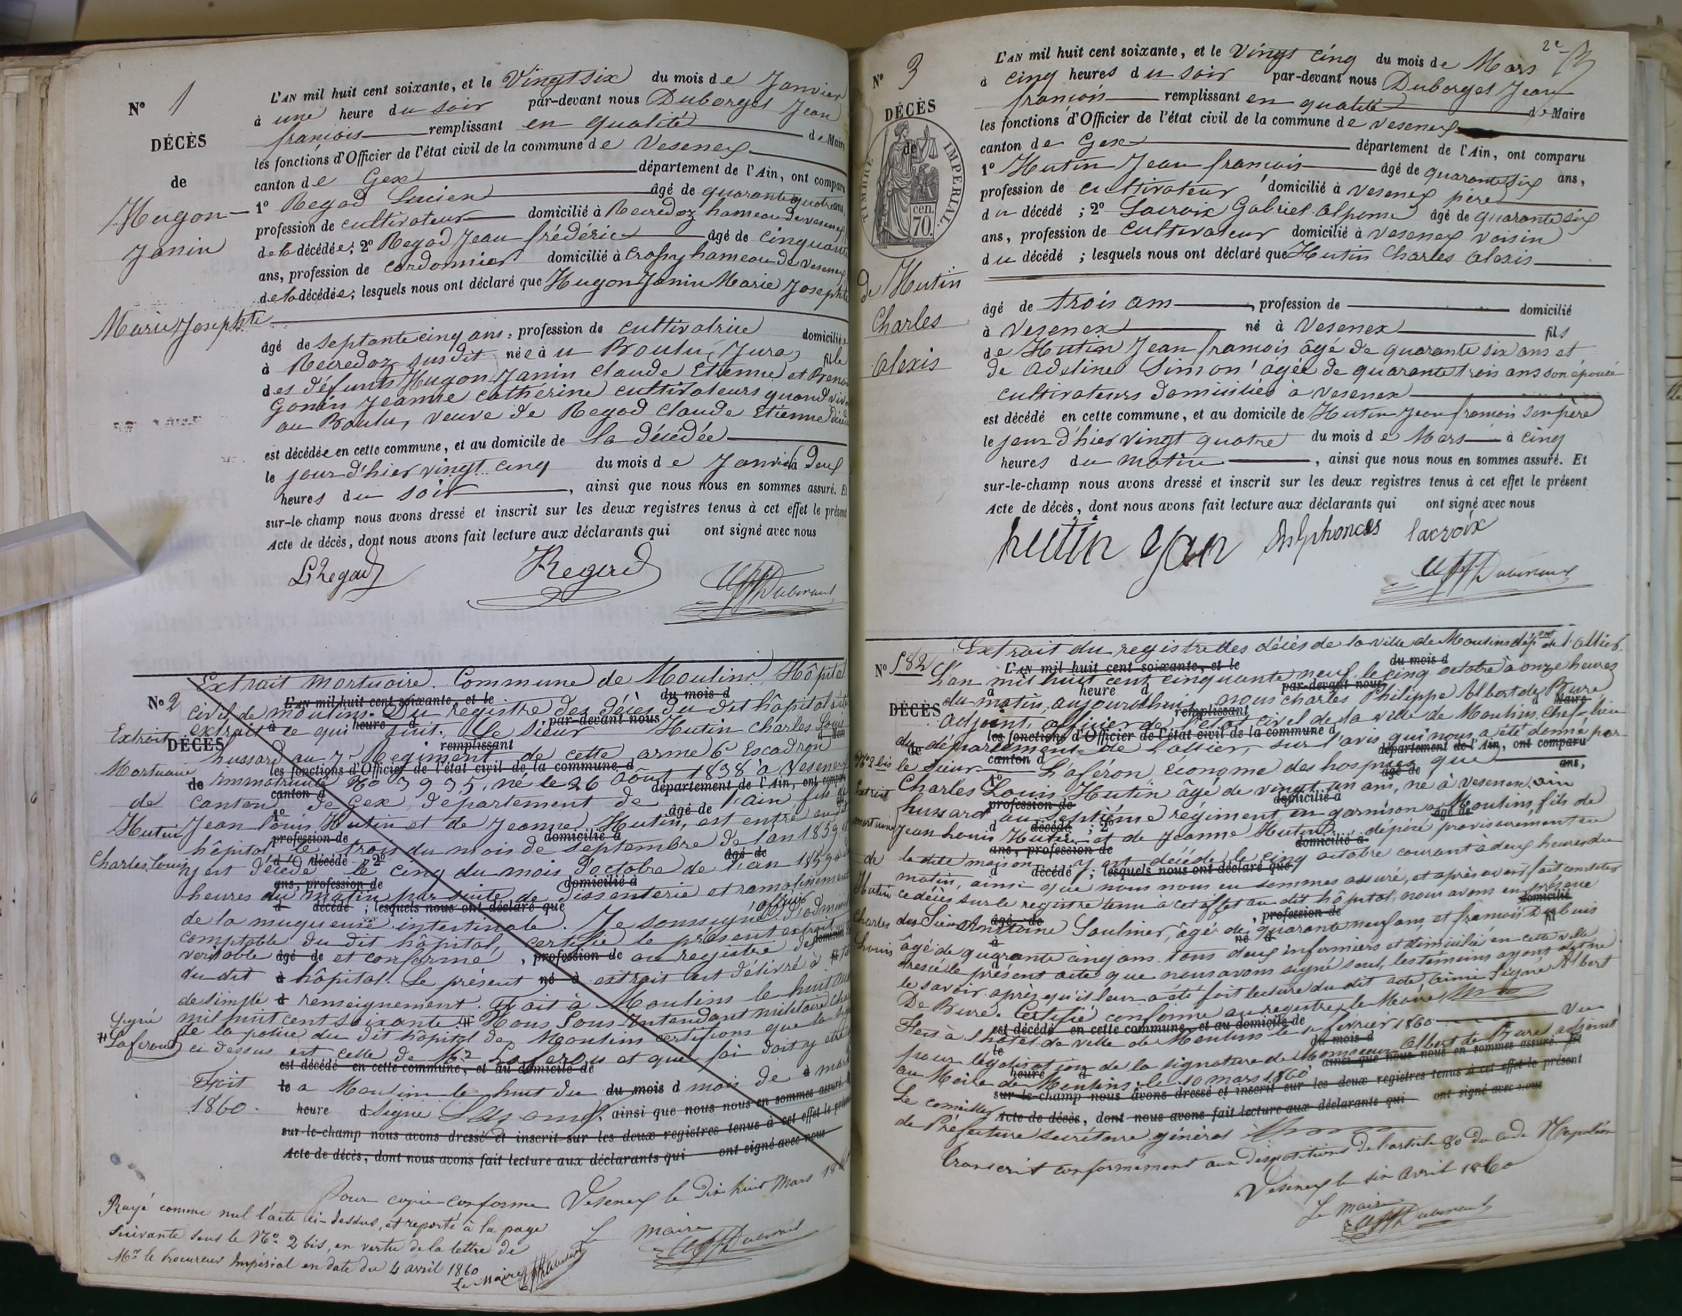 N° 1
DÉCÈS
de
Hugon
Janin
Marie Josephte
L'AN mil huit cent soixante, et le Vingt six du mois de Janvier
à une heure du soir par-devant nous Duborget Jean
françois remplissant en qualité de Maire
les fonctions d'Officier de l'état civil de la commune de Vesenex
canton de Gex département de l'Ain, ont comparu
1° Regad Lucien âgé de quarante quatre ans,
profession de cultivateur domicilié à Recredoz hameau de Vesenex
de la décédée; 2° Regad Jean frédéric âgé de cinquante
ans, profession de cordonnier domicilié à Crapy hameau de Vesenex
de la décédée; lesquels nous ont déclaré que Hugon Janin Marie Josephte
âgée de septante cinq ans, profession de cultivatrice domiciliée
à Recredoz susdit née à u Boulu, Jura, fille
des défunts Hugon Janin Claude Etienne et
Jeanne Catherine cultivateurs quand vivaient
au Boulu, veuve de Regad Claude Etienne
est décédée en cette commune, et au domicile de la décédée
le jour d'hier vingt cinq du mois de Janvier à deux
heures du soir, ainsi que nous nous en sommes assuré. Et
sur-le-champ nous avons dressé et inscrit sur les deux registres tenus à cet effet le présent
Acte de décès, dont nous avons fait lecture aux déclarants qui ont signé avec nous
LRegad
Regad
N° 2
Extrait
DÉCÈS
Mortuaire
de
Hutin
Charles Louis
Extrait mortuaire. Commune de Moulins. Hôpital
civil de Moulins. Du registre des décès du dit hôpital
extrait ce qui suit. Le Sieur Hutin Charles Louis
hussard au 7 Régiment de cette arme 6e Escadron
immatriculé No 3935, né le 26 Août 1838 à Vesenex
canton de Gex département de l'ain, fils de
Jean Louis Hutin et de Jeanne Hutin, est entré au dit
hôpital le trois du mois de Septembre de l'an 1859
y est décédé le cinq du mois d'octobre de l'an 1859 à
heures du matin par suite de dissenterie et ramolissement
de la muqueuse intestinale. Je soussigné officier d'admon
comptable du dit hôpital, certifie le présent extrait
véritable et conforme au registre de
du dit hôpital. Le présent extrait est délivré à titre
de simple renseignement. Fait à Moulins le huit mars
mil huit cent soixante. Nous Sous Intendant militaire chargé
de la police du dit hôpital de Moulins certifions que la
ci dessus est celle de Mr Laferous et que foi doit y être
à Moulins le huit du mois de mars
Signé
Fait
1860.
Pour copie conforme Vesenex le dix huit Mars 1860
Le maire
Rayé comme nul l'acte ci-dessus, et reporté à la page
Suivante sous le N° 2 bis, en vertu de la lettre de
Mr le Procureur Impérial en date du 4 avril 1860
Le Maire
N° 3
DÉCÈS
de
TIMBRE IMPÉRIAL
70 cen.
de Hutin
Charles
Alexis
L'AN mil huit cent soixante, et le vingt cinq du mois de Mars
à cinq heures du soir par-devant nous Duborget Jean
françois remplissant en qualité de Maire
les fonctions d'Officier de l'état civil de la commune de Vesenex
canton de Gex département de l'Ain, ont comparu
1° Hutin Jean françois âgé de quarante six ans,
profession de cultivateur domicilié à Vesenex père
du décédé; 2° Lacroix Gabriel Alponse âgé de quarante six
ans, profession de cultivateur domicilié à Vesenex voisin
du décédé; lesquels nous ont déclaré que Hutin Charles Alexis
âgé de trois ans, profession de domicilié
à Vesenex né à Vesenex fils
de Hutin Jean françois âgé de quarante six ans et
de Adeline Simon âgée de quarante trois ans son épouse
cultivateurs domiciliés à Vesenex
est décédé en cette commune, et au domicile de Hutin Jean françois son père
le jour d'hier vingt quatre du mois de Mars à cinq
heures du matin, ainsi que nous nous en sommes assuré. Et
sur-le-champ nous avons dressé et inscrit sur les deux registres tenus à cet effet le présent
Acte de décès, dont nous avons fait lecture aux déclarants qui ont signé avec nous
hutin jan
Alphonces lacroix
N° 582
DÉCÈS
N° 2 bis
Extrait
mortuaire
de
Hutin
Charles
Louis
Extrait du registre des décès de la ville de Moulins dépt de l'Allier.
L'an mil huit cent cinquante neuf le cinq octobre à onze heures
du matin, aujourd'hui, nous Charles Philippe Albert de Bure
adjoint, officier de l'état civil de la ville de Moulins chef lieu
du département de l'allier, sur l'avis qui nous a été donné par
le sieur Laféron, économe des hospices que
Charles Louis Hutin âgé de vingt un ans, né à Vesenex, ain
hussard au septième régiment en garnison à Moulins, fils de
Jean Louis Hutin et de Jeanne Hutin, déposé provisoirement en
la dite maison y est décédé le cinq octobre courant à deux heures du
matin, ainsi que nous nous en sommes assuré, et après avoir fait constater
ce décès sur le registre tenu à cet effet au dit hôpital, nous avons en présence
des Sieurs Antoine Saulnier, âgé de quarante neuf ans, et françois Dubuis
âgé de quarante cinq ans, tous deux infirmiers et domiciliés en cette ville
dressé le présent acte que nous avons signé seul, les témoins ayant dit ne
le savoir après qu'il leur a été fait lecture du dit acte, ainsi signé Albert
De Bure. Certifié conforme au registre, le Maire
Fait à l'hôtel de ville de Moulins le février 1860 Vu
pour légalisation de la signature de Monsieur Albert de Bure, adjoint
au Maire de Moulins, le 10 mars 1860
Le conseiller
de Préfecture secrétaire général
Transcrit conformément aux dispositions de l'article 80 du code Napoléon
Vesenex le six Avril 1860
Le maire